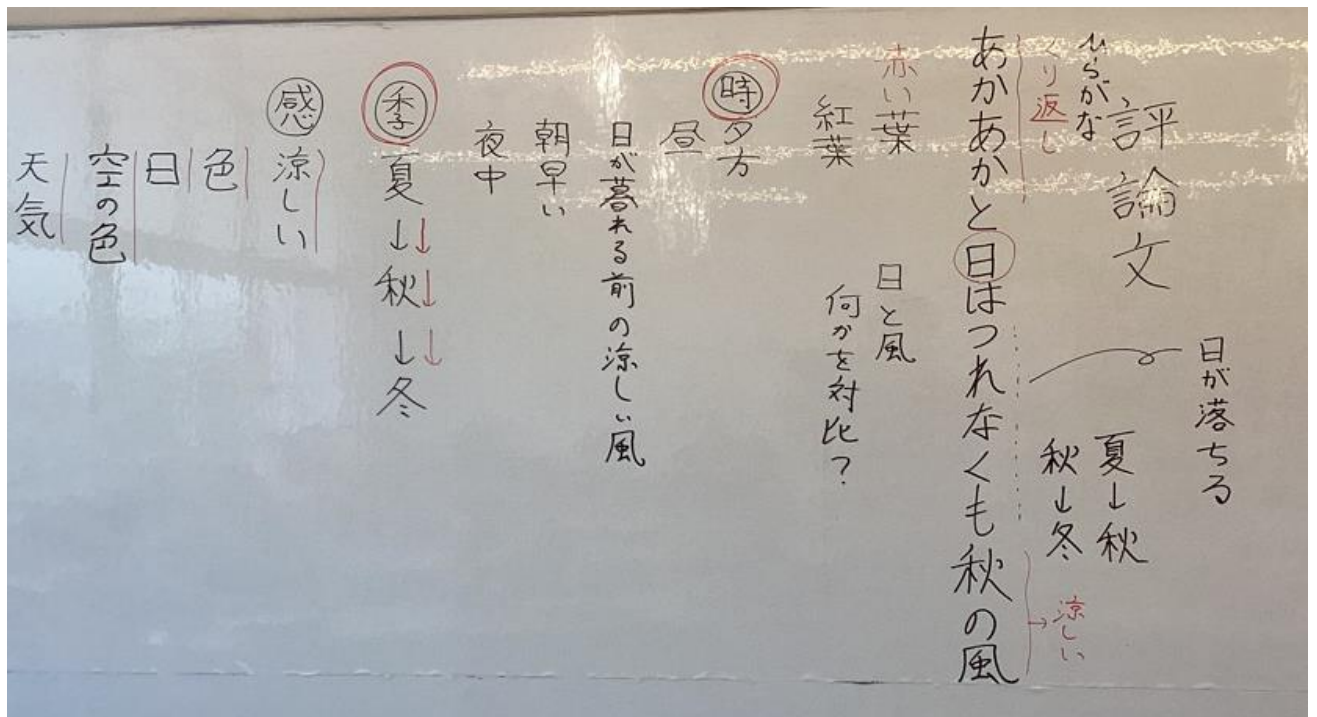 評論文
日が落ちる
夏→秋
秋→冬
ひらがな
くり返し
あかあかと日はつれなくも秋の風
涼しい
赤い葉
紅葉
日と風
何かを対比?
時 夕方
昼
日が暮れる前の涼しい風
朝早い
夜中
季 夏→秋→冬
感 涼しい
色
日
空の色
天気